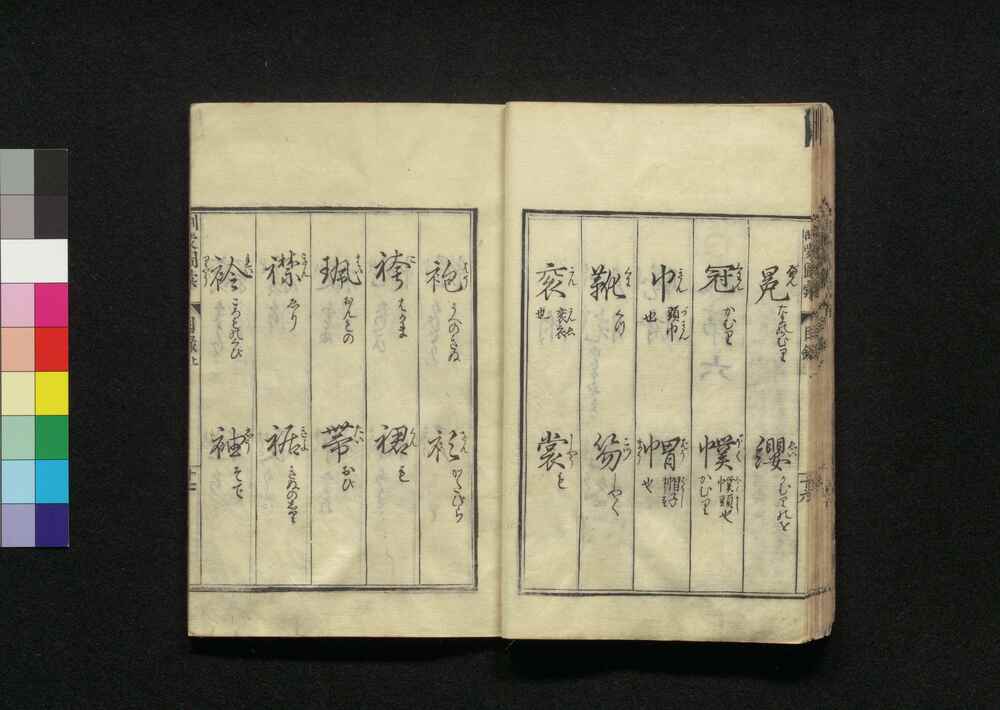 冕 べん たまのかむり
纓 ゑい かむりのを
冠 くわん かむり
幞 ぼく 幞頭也 かむり
巾 きん 頭巾也 づきん
帽 ぼう 帽子也 ぼうし
靴 くわ くつ
笏 こつ しやく
衮 こん 衮衣也 こんえ
裳 しやう も
袍 はう うへのきぬ
衫 さん かたびら
袴 こ はかま
裙 くん も
珮 はい おんもの
帯 たい おび
襟 きん ゑり
裾 きよ きぬのしり
袊 れい りやう ころものくび
袖 しう そで